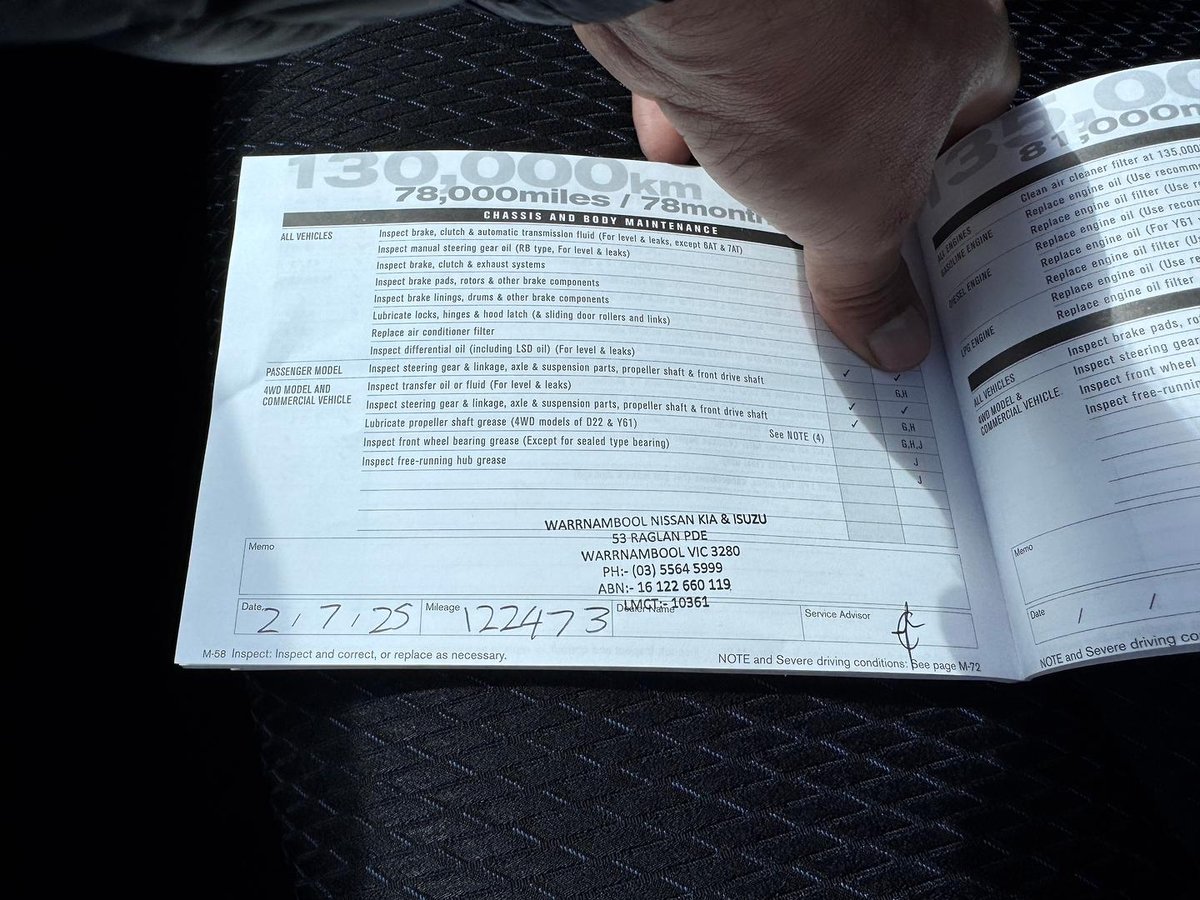 130,000km
78,000miles / 78month
CHASSIS AND BODY MAINTENANCE
ALL VEHICLES Inspect brake, clutch & automatic transmission fluid (For level & leaks, except 6AT & 7AT)
Inspect manual steering gear oil (RB type, For level & leaks)
Inspect brake, clutch & exhaust systems
Inspect brake pads, rotors & other brake components
Inspect brake linings, drums & other brake components
Lubricate locks, hinges & hood latch (& sliding door rollers and links)
Replace air conditioner filter
Inspect differential oil (including LSD oil) (For level & leaks)
PASSENGER MODEL Inspect steering gear & linkage, axle & suspension parts, propeller shaft & front drive shaft ✓ ✓
4WD MODEL AND COMMERCIAL VEHICLE Inspect transfer oil or fluid (For level & leaks) G,H
Inspect steering gear & linkage, axle & suspension parts, propeller shaft & front drive shaft ✓ ✓
Lubricate propeller shaft grease (4WD models of D22 & Y61) ✓ G,H
Inspect front wheel bearing grease (Except for sealed type bearing) See NOTE (4) G,H,J
Inspect free-running hub grease J
J
WARRNAMBOOL NISSAN KIA & ISUZU
53 RAGLAN PDE
WARRNAMBOOL VIC 3280
PH:- (03) 5564 5999
ABN:- 16 122 660 119
LMCT:- 10361
Memo
Date 2/7/25 Mileage 122473 Dealer Name Service Advisor
M-58 Inspect: Inspect and correct, or replace as necessary. NOTE and Severe driving conditions: See page M-72
135,00
81,000m
ALL ENGINES Clean air cleaner filter at 135,000
GASOLINE ENGINE Replace engine oil (Use recomm
Replace engine oil filter (Use re
DIESEL ENGINE Replace engine oil (Use recom
Replace engine oil (For Y61
Replace engine oil filter (U
LPG ENGINE Replace engine oil (Use re
Replace engine oil filter
ALL VEHICLES Inspect brake pads, ro
4WD MODEL & COMMERCIAL VEHICLE Inspect steering gear
Inspect front wheel
Inspect free-runni
Memo
Date / /
NOTE and Severe driving co